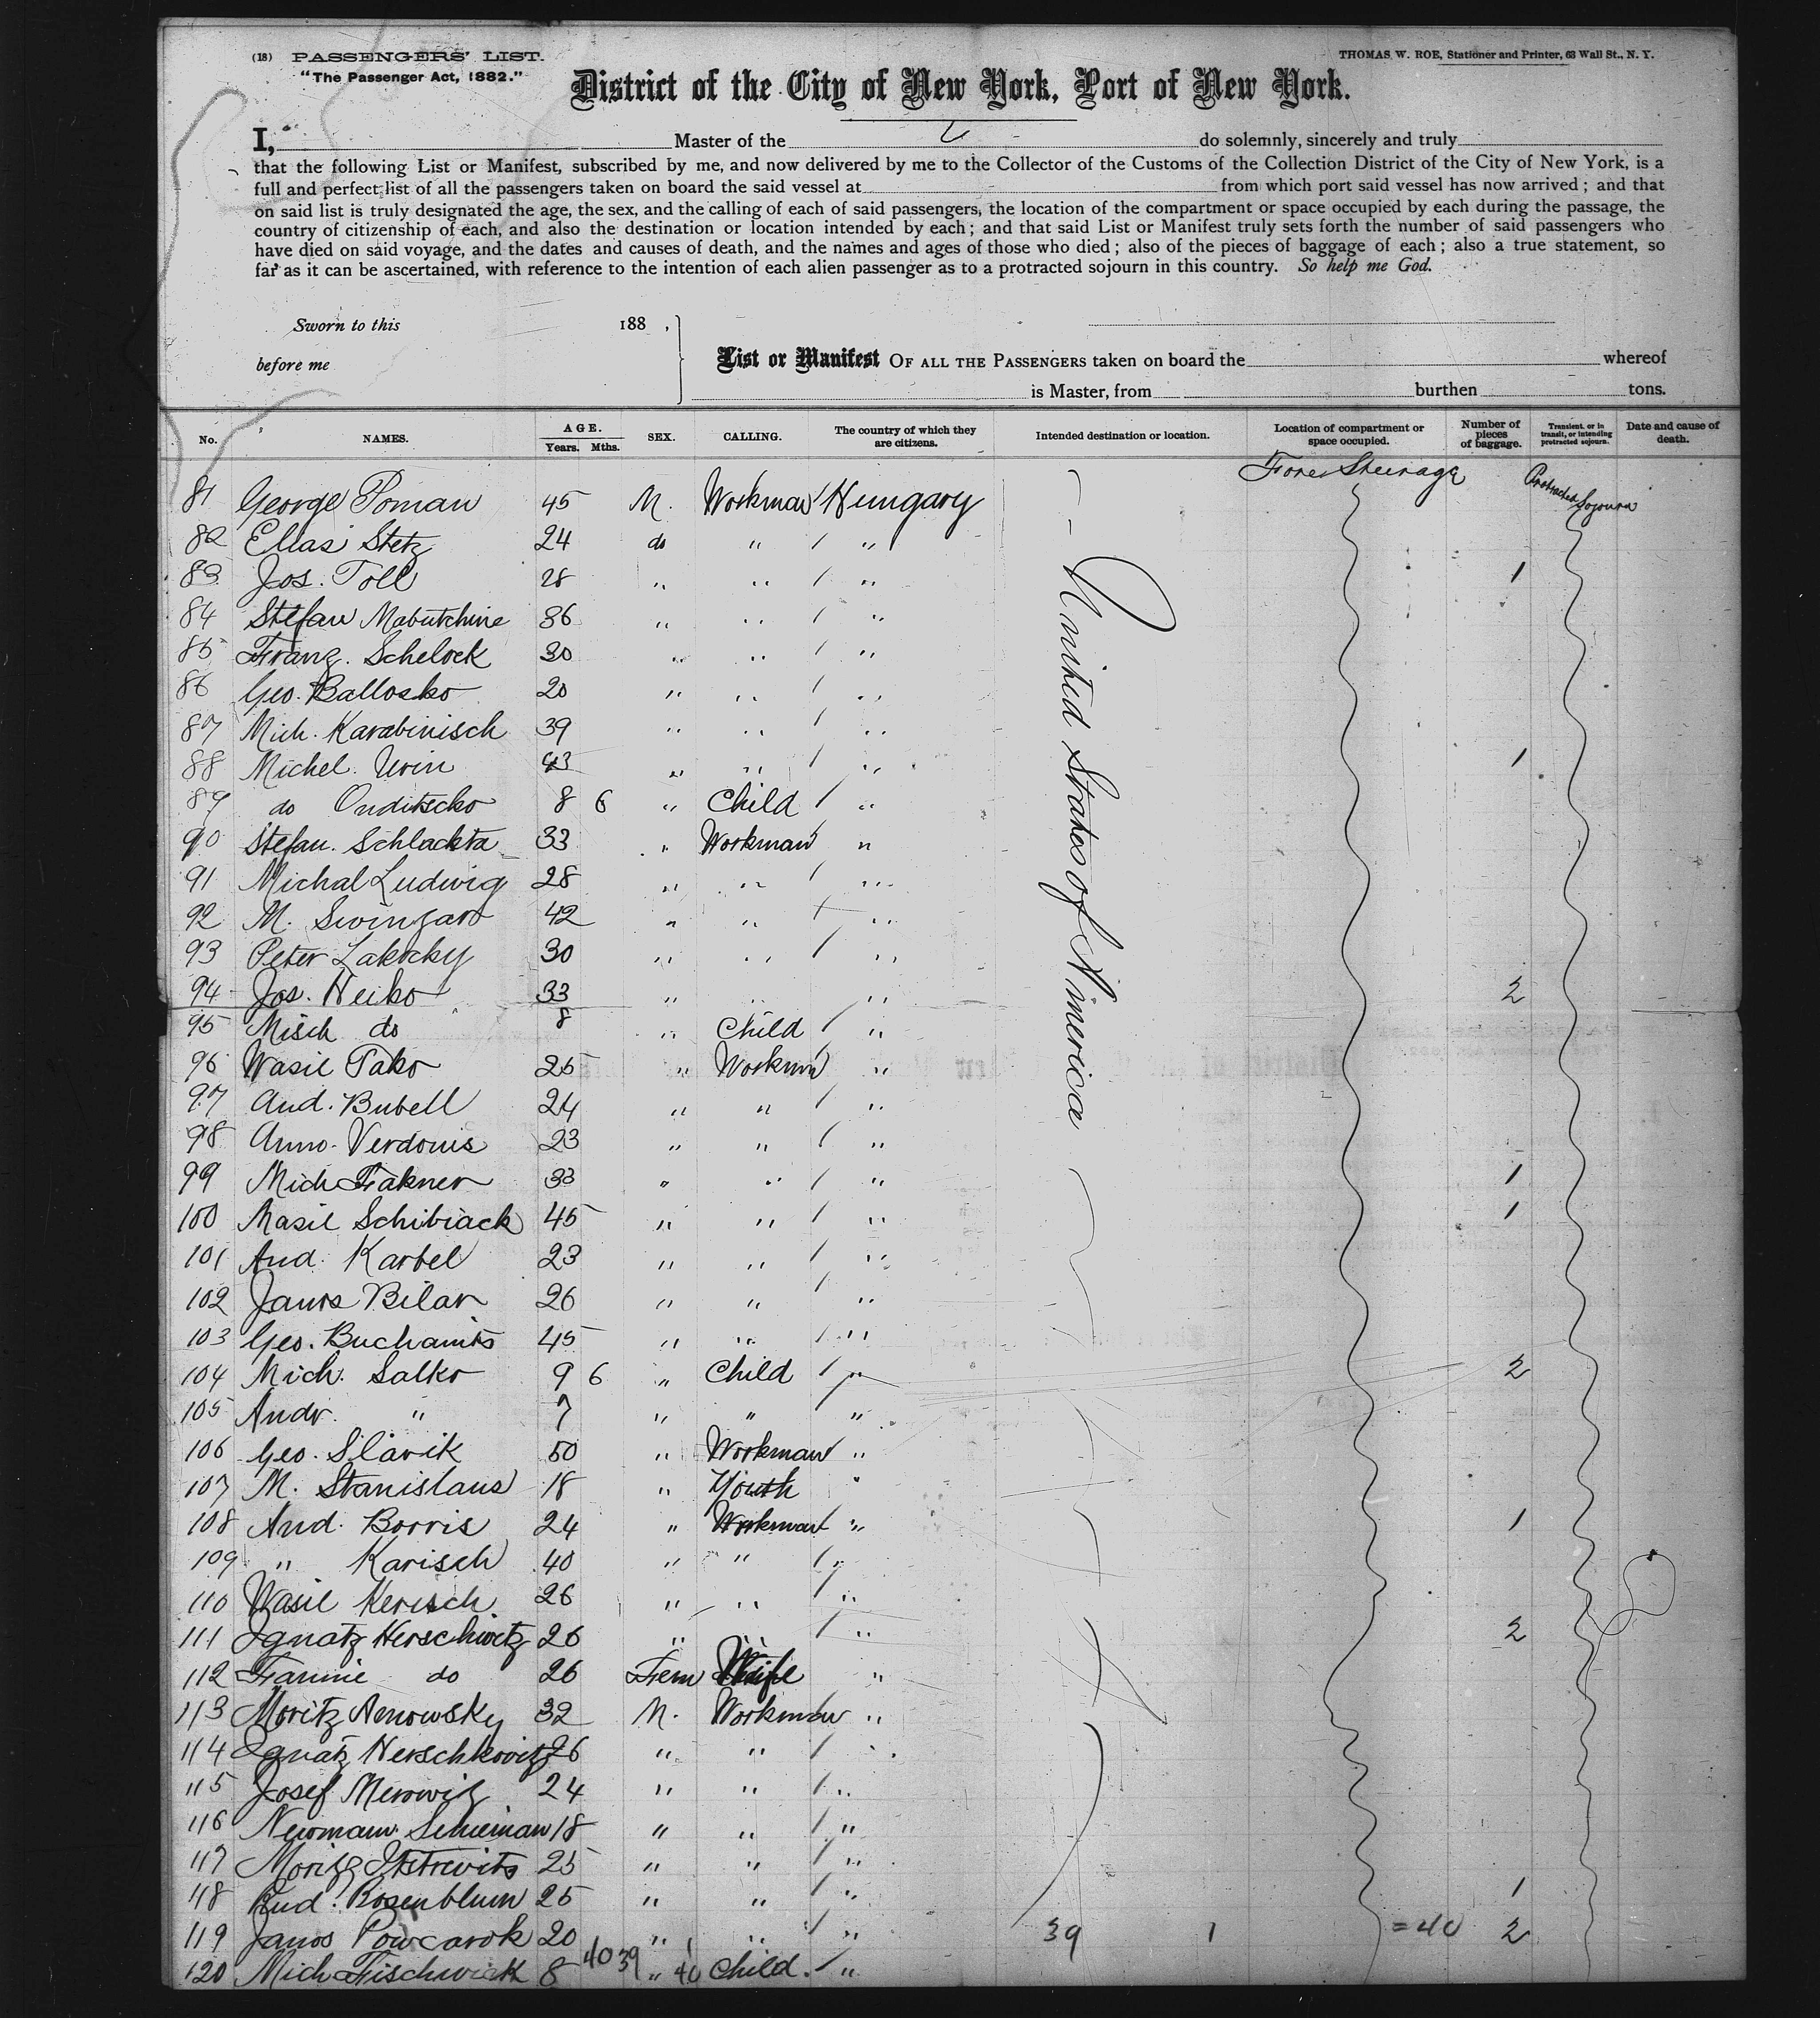 (18) PASSENGERS' LIST.
"The Passenger Act, 1882."
THOMAS W. ROE, Stationer and Printer, 63 Wall St., N. Y.
District of the City of New York, Port of New York.
I, Master of the do solemnly, sincerely and truly
that the following List or Manifest, subscribed by me, and now delivered by me to the Collector of the Customs of the Collection District of the City of New York, is a
full and perfect list of all the passengers taken on board the said vessel at from which port said vessel has now arrived; and that
on said list is truly designated the age, the sex, and the calling of each of said passengers, the location of the compartment or space occupied by each during the passage, the
country of citizenship of each, and also the destination or location intended by each; and that said List or Manifest truly sets forth the number of said passengers who
have died on said voyage, and the dates and causes of death, and the names and ages of those who died; also of the pieces of baggage of each; also a true statement, so
far as it can be ascertained, with reference to the intention of each alien passenger as to a protracted sojourn in this country. So help me God.
Sworn to this 188 ,
before me
List or Manifest OF ALL THE PASSENGERS taken on board the whereof
is Master, from burthen tons.
No. NAMES. AGE. Years. Mths. SEX. CALLING. The country of which they are citizens. Intended destination or location. Location of compartment or space occupied. Number of pieces of baggage. Transient, or in transit, or intending protracted sojourn. Date and cause of death.
Fore Steerage
Protracted Sojourn
United States of America
81 George Poman 45 M. Workman Hungary
82 Elias Stetz 24 do " "
83 Jos. Toll 28 " " " 1
84 Stefan Mabutchine 36 " " "
85 Franz. Schelock 30 " " "
86 Geo. Ballosko 20 " " "
87 Mich. Karabinisch 39 " " "
88 Michel. Urin 43 " " " 1
89 do Onditscko 8 6 " Child "
90 Stefan. Schlackta 33 " Workman "
91 Michal Ludwig 28 " " "
92 M. Swingaro 42 " " "
93 Peter Lakocky 30 " " "
94 Jos. Heiko 33 " " " 2
95 Misch do 8 " Child "
96 Wasil Tako 25 " Workmn "
97 And. Bubell 24 " " "
98 Anno. Verdonis 23 " " "
99 Mich Fakner 33 " " " 1
100 Masil Schibiack 45 " " " 1
101 And. Karbel 23 " " "
102 Janos Bilar 26 " " "
103 Geo. Buchanits 45 " " "
104 Mich. Salko 9 6 " Child " 2
105 Andr. " 7 " " "
106 Geo. Slavik 50 " Workman "
107 M. Stanislaus 18 " Youth "
108 And. Borris 24 " Workman " 1
109 " Karisch 40 " " "
110 Wasil Kerisch 26 " " "
111 Ignatz Herschwitz 26 " " " 2
112 Fannie do 26 Fem Wife "
113 Moritz Arnowsky 32 M. Workman "
114 Ignatz Herschkovitz 26 " " "
115 Josef Merowiz 24 " " "
116 Newmann Schieman 18 " " "
117 Moritz 25 " " "
118 Rud. Rosenblum 25 " " " 1
119 Janos Powcarok 20 " " " 39 1 =40 2
120 Mich Fischwick 8 40 39 " 1 40 Child. "